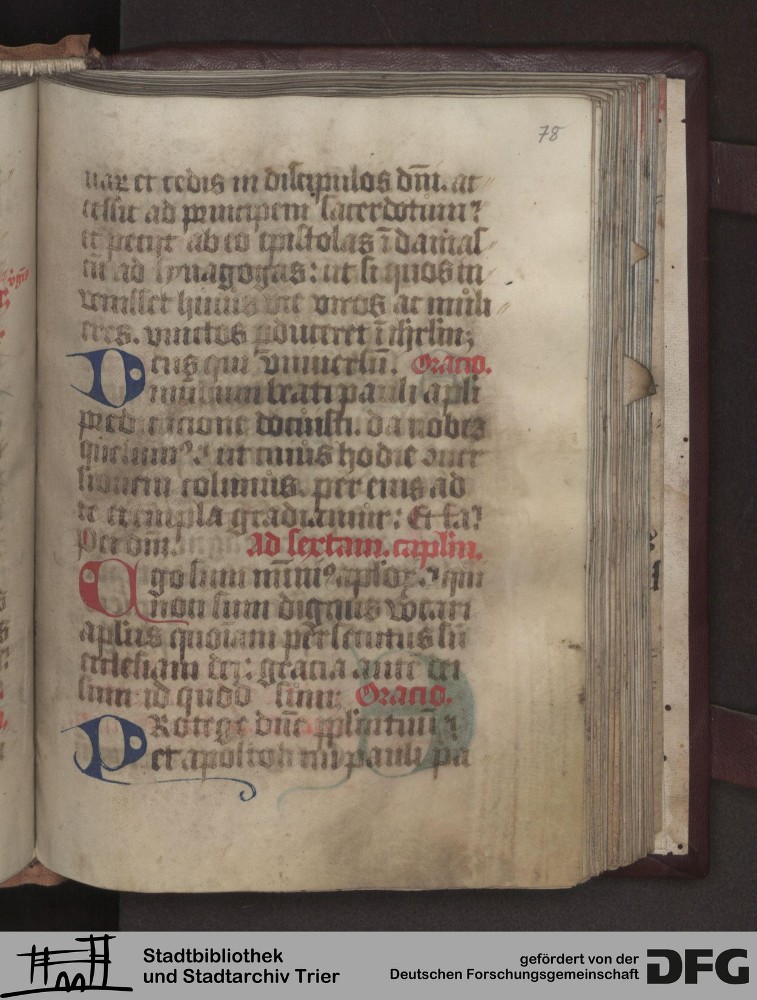 78
nar et cedis in discipulos dn̄i. ac
cessit ad principem sacerdotum ⁊
et peciit ab eo epistolas ī damas
cū ad synagogas: ut si quos in
uenisset huius vie viros ac muli
eres. vinctos ꝑduceret ī ihrlm;
Deus qui vniuersū. Oracio.
mundum beati pauli apli
predicacione docuisti. da nobis
ut cuius hodie ꝯuer
sionem colimus. per eius ad
te exempla gradiamur: Et fa⁊
Per dn̄m. Ad sextam. caplm.
go sum minīꝰ aplox. qui
non sum dignus vocari
aplus quoniam persecutus sū
ecclesiam dei: gracia autē dei
sum id quod sum: Oracio.
PRotege dn̄e pplm tuum ⁊
et apostoli tui pauli pa
Stadtbibliothek
und Stadtarchiv Trier
gefördert von der
Deutschen Forschungsgemeinschaft
DFG